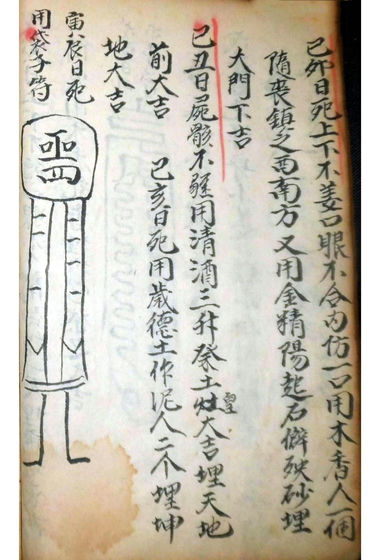 己卯日死上下不姜口眼不合内仿一口用木香人一個
随丧鎮之西南方又用金精陽起石僻殃砂埋
大門下吉
己丑日屍骸不殜用清酒三升祭土灶皇大吉埋天地
前大吉 己亥日死用歲德土作泥人二个埋坤
地大吉
寅辰日死
用袋子符